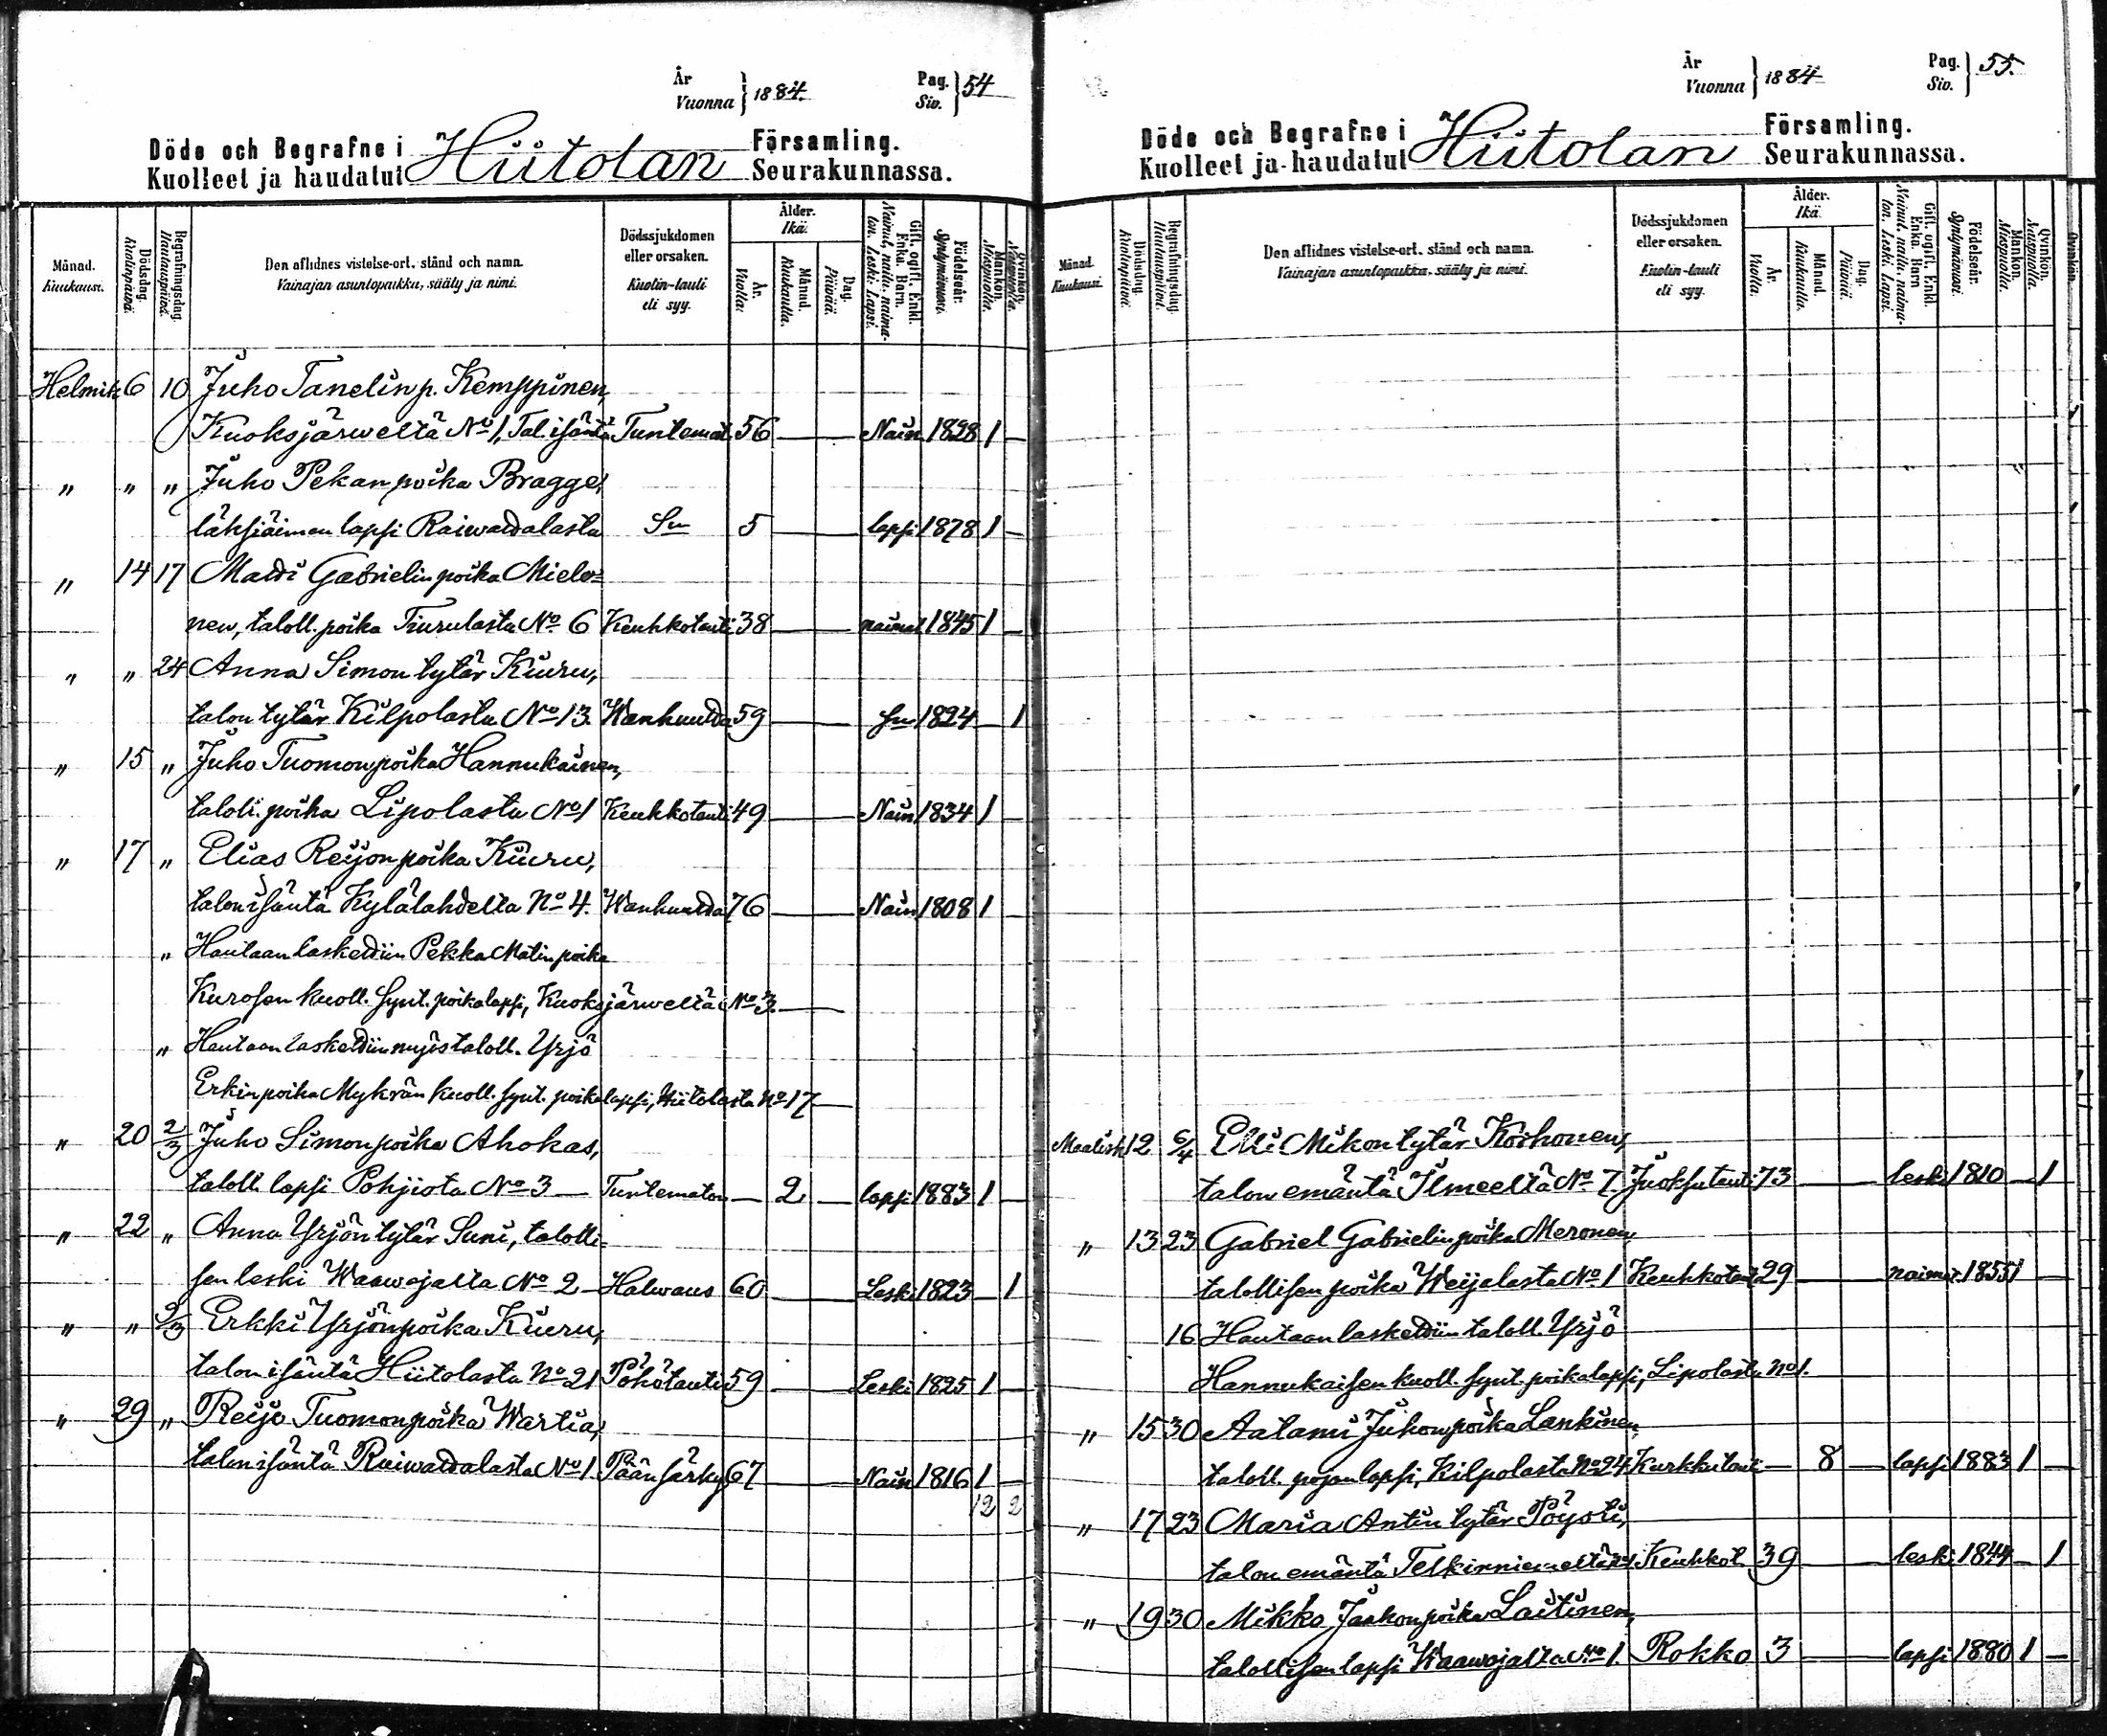 År
Vuonna } 1884.
Pag.
Siv. } 54
Döde och Begrafne i
Kuolleet ja haudatut Hiitolan Församling.
Seurakunnassa.
Månad.
Kuukausi.
Dödsdag.
Kuolinpäivä.
Begrafningsdag.
Hautauspäivä.
Den aflidnes vistelse-ort, stånd och namn.
Vainajan asuntopaikka, sääty ja nimi.
Dödssjukdomen
eller orsaken.
Kuolin-tauti
eli syy.
Ålder.
Ikä.
År.
Vuotta.
Månad.
Kuukautta.
Dag.
Päivää.
Gift, ogift, Enkl.
Enka. Barn.
Nainut, naitu, naima-
ton. Leski. Lapsi.
Födelseår.
Syntymävuosi.
Mankön.
Miespuolia.
Qvinkön.
Helmik. 6 10 Juho Tanelinp. Kemppinen,
Kuoksjärweltä No 1, Tal. isäntä Tuntemat. 56 Nain 1828 1 —
" " " Juho Pekanpoika Bragge,
läksiäimen lapsi Raiwadalasta Sn 5 lapsi 1878 1 —
" 14 17 Matti Gabrielinpoika Mielo-
nen, taloll. poika Tiurulasta No 6 Keuhkotauti 38 naimat. 1845 1 —
" " 24 Anna Simontytär Kiuru,
talon tytär Kilpolasta No 13. Wanhuutta 59 Sn 1824 — 1
" 15 " Juho Tuomonpoika Hannukainen,
taloll. poika Lipolasta No 1 Keuhkotauti 49 Nain 1834 1 —
" 17 " Elias Reijonpoika Kiuru,
talonisäntä Kylälahdelta No 4. Wanhuutta 76 Nain 1808 1 —
" Hautaan laskettiin Pekka Matinpoika
Kurosen kuoll. synt. poikalapsi, Kuoksjärweltä No 3.
" Hautaan laskettiin myös taloll. Yrjö
Erkinpoika Mykrän kuoll. synt. poikalapsi, Hiitolasta No 17
" 20 2/3 Juho Simonpoika Ahokas,
taloll. lapsi Pohjiota No 3 — Tuntematon — 2 — lapsi 1883 1 —
" 22 " Anna Yrjöntytär Suni, talolli-
sen leski Waawojalta No 2 — Halwaus 60 Leski 1823 — 1
" " 9/3 Erkki Yrjönpoika Kiuru,
talonisäntä Hiitolasta No 21 Pöhötauti 59 Leski 1825 1 —
" 29 " Reijo Tuomonpoika Wartia,
talonisäntä Raiwattalasta No 1. Päänsärky 67 Nain 1816 1 —
12 2
År
Vuonna } 1884
Pag.
Siv. } 55.
Döde och Begrafne i
Kuolleet ja haudatut Hiitolan Församling.
Seurakunnassa.
Månad.
Kuukausi.
Dödsdag.
Kuolinpäivä.
Begrafningsdag.
Hautauspäivä.
Den aflidnes vistelse-ort, stånd och namn.
Vainajan asuntopaikka, sääty ja nimi.
Dödssjukdomen
eller orsaken.
Kuolin-tauti
eli syy.
Ålder.
Ikä.
År.
Vuotta.
Månad.
Kuukautta.
Dag.
Päivää.
Gift, ogift, Enkl.
Enka. Barn
Nainut, naitu, naima-
ton. Leski. Lapsi.
Födelseår.
Syntymävuosi.
Mankön.
Miespuolia.
Qvinkön.
Naispuolia.
Maalisk. 12 6/4 Elli Mikontytär Korhonen,
talon emäntä Ilmeeltä No 7. Juoksutauti 73 leski 1810 — 1
" 13 23 Gabriel Gabrielinpoika Meronen,
talollisen poika Weijalasta No 1 Keuhkotauti 29 naimat. 1855 1 —
16 Hautaan laskettiin taloll. Yrjö
Hannukaisen kuoll. synt. poikalapsi, Lipolasta No 1.
" 15 30 Aatami Juhonpoika Lankinen,
taloll. pojan lapsi, Kilpolasta No 24 Kurkkutauti — 8 — lapsi 1883 1 —
" 17 23 Maria Antintytär Pöysti,
talon emäntä Telkinniemeltä Keuhkot. 39 leski 1844 — 1
" 19 30 Mikko Jaakonpoika Laitinen,
talollisen lapsi Waawojalta No 1. Rokko 3 lapsi 1880 1 —